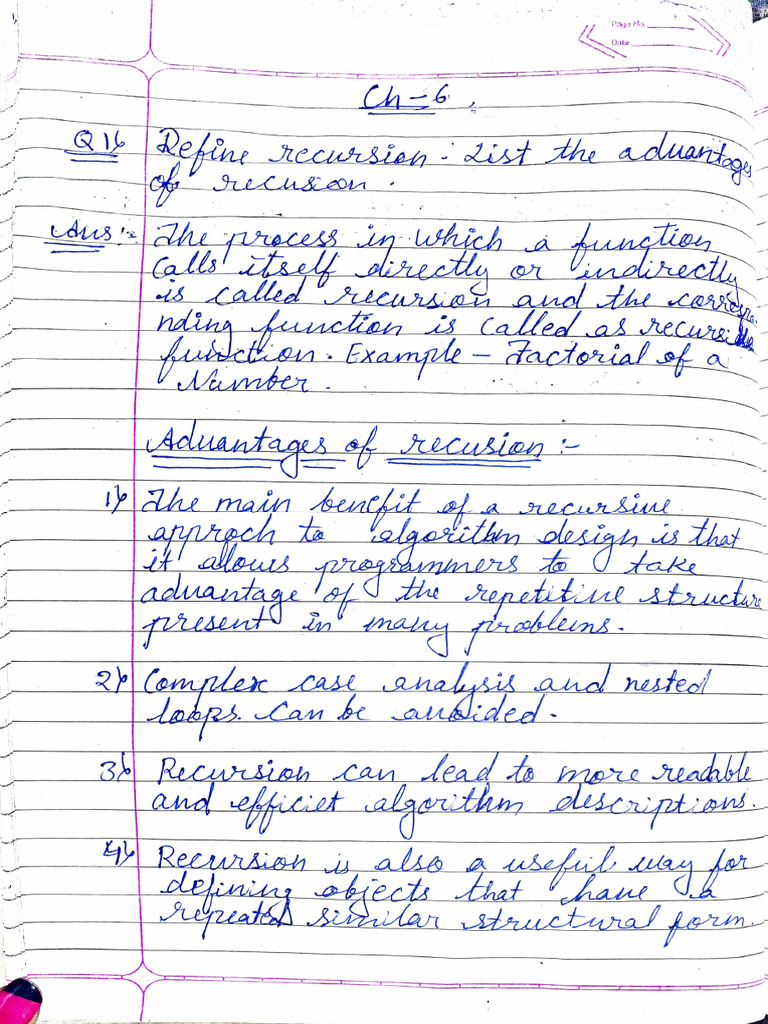 Page No.
Date
Ch-6.
Q 1) Define recursion. List the advantages
of recusion.
Ans:- The process in which a function
calls itself directly or indirectly
is called recursion and the correspo-
nding function is called as recursive
function. Example - Factorial of a
Number.
Advantages of recusion:-
1) The main benefit of a recursive
approch to algorithm design is that
it allows programmers to take
advantage of the repetitive structure
present in many problems.
2) Complex case analysis and nested
loops can be avoided.
3) Recursion can lead to more readable
and efficiet algorithm descriptions.
4) Recursion is also a useful way for
defining objects that have a
repeated similar structural form.